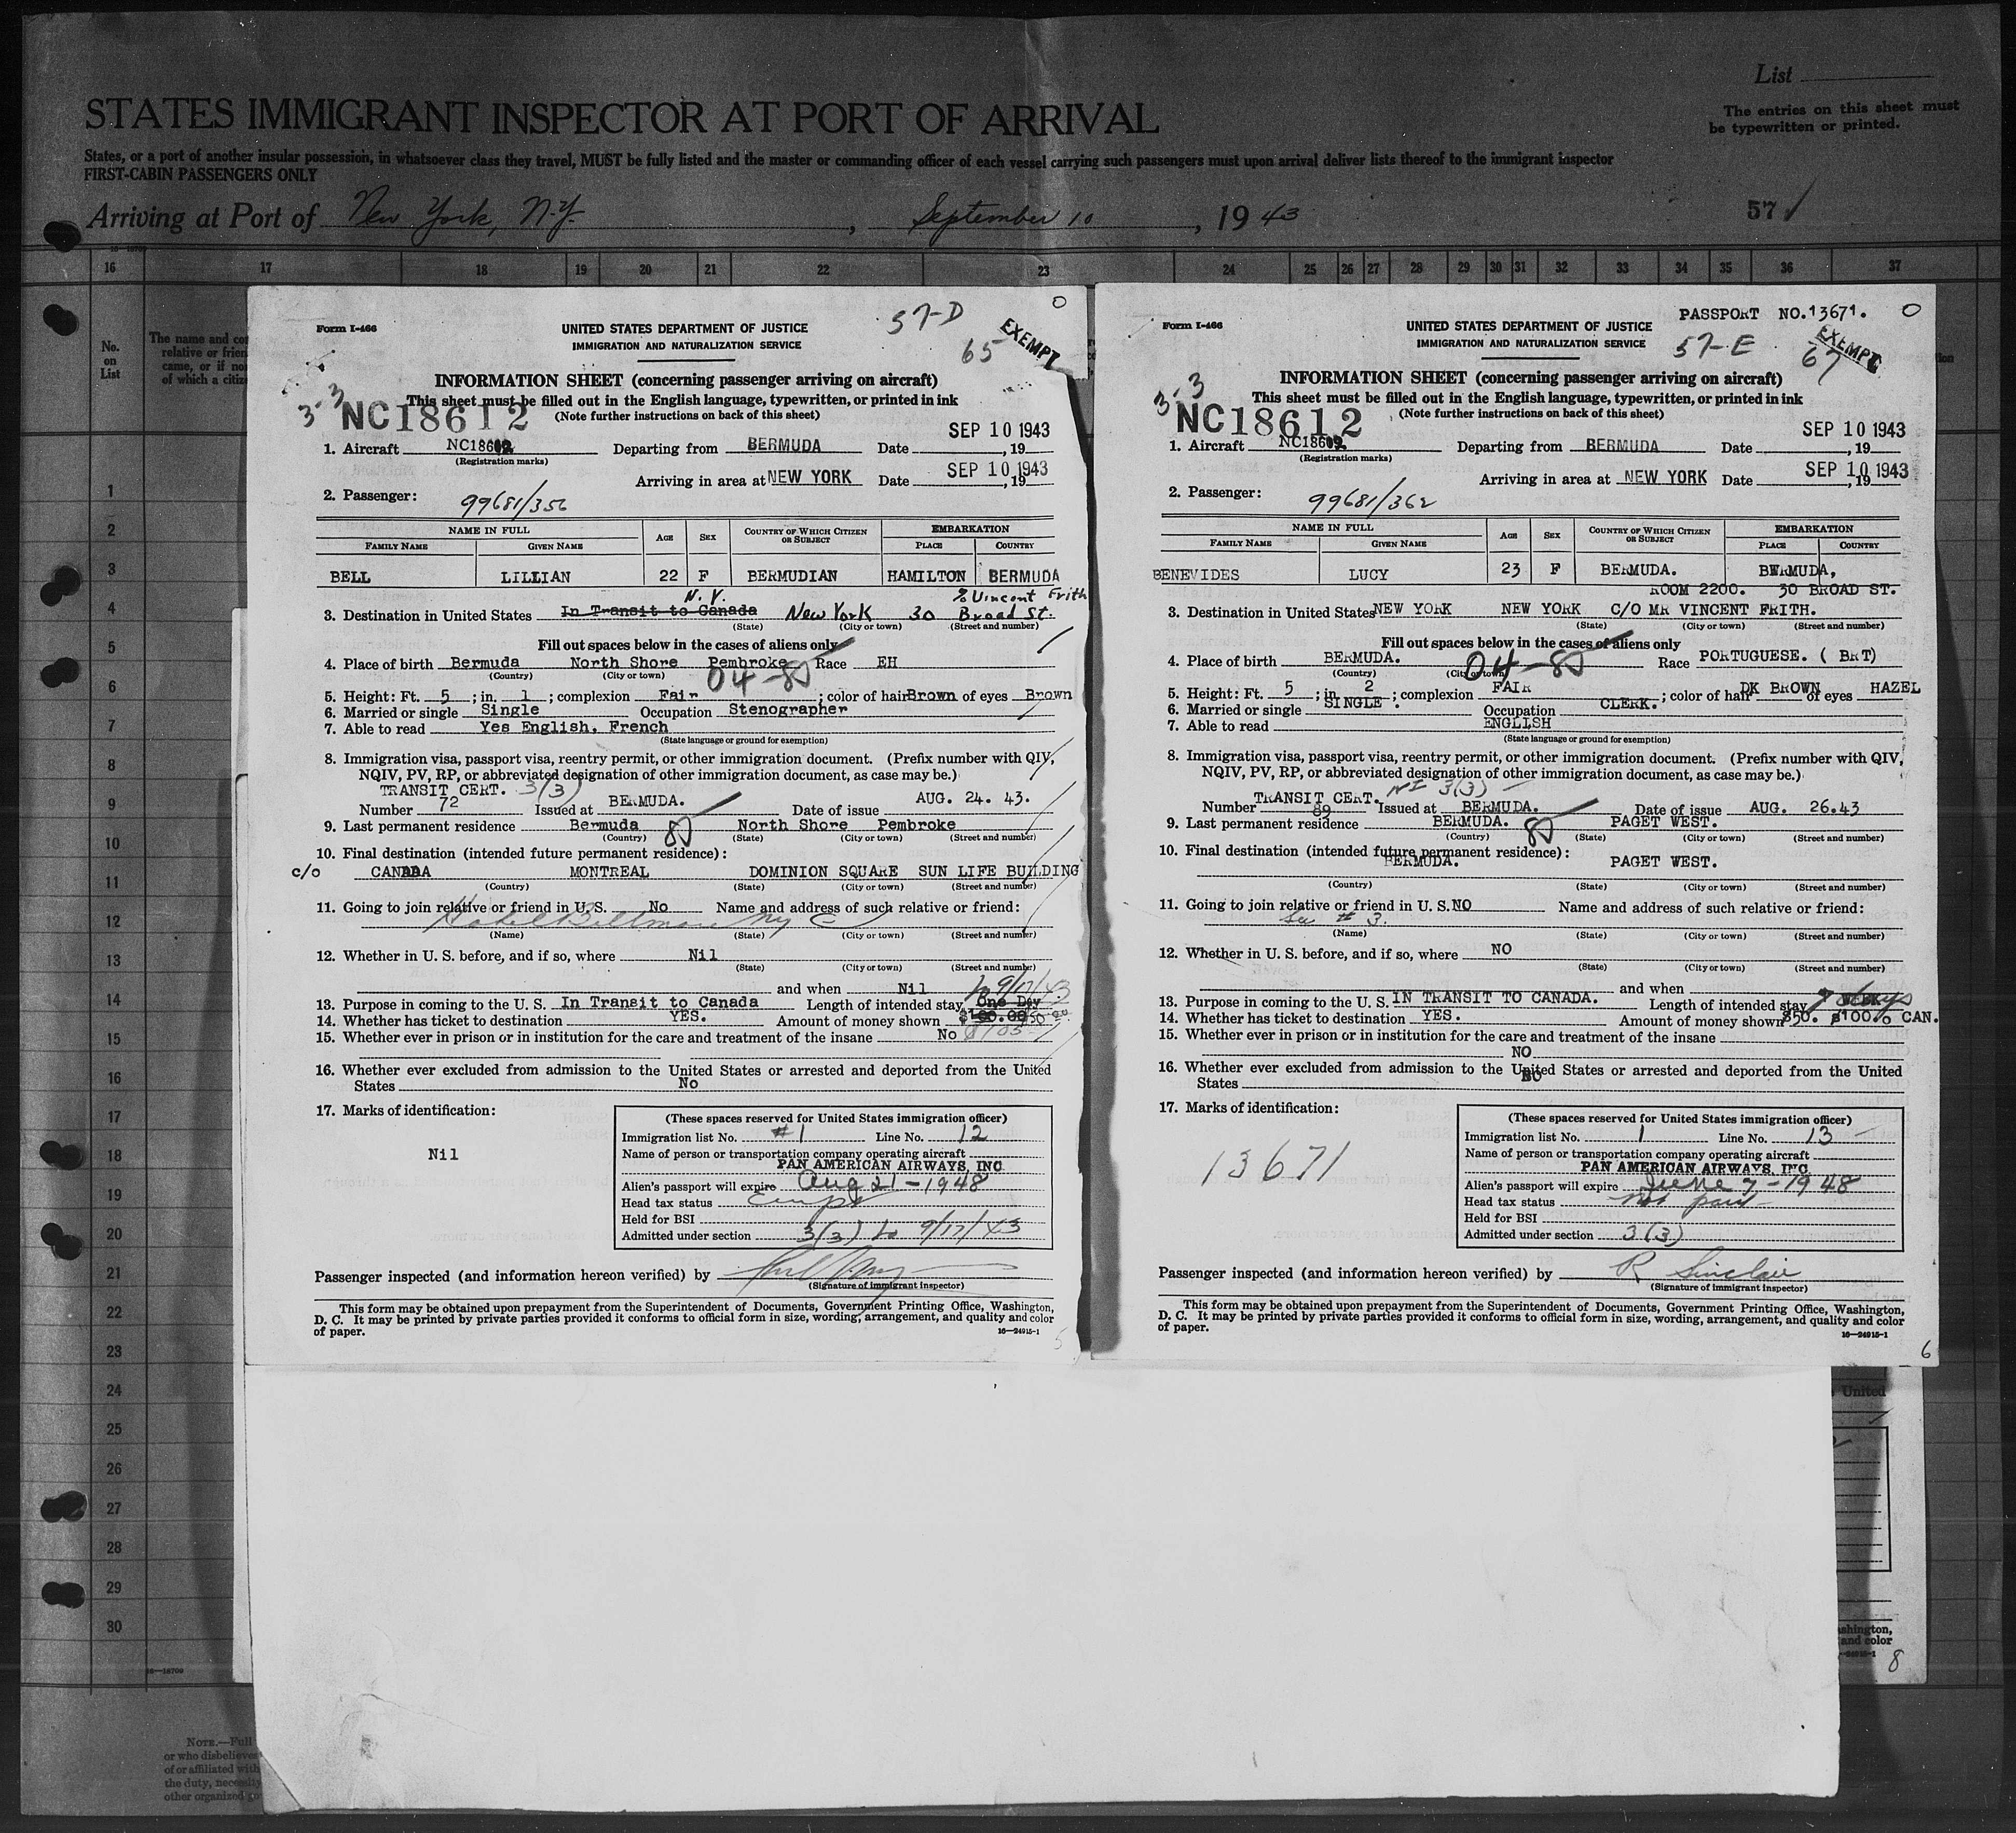 List
STATES IMMIGRANT INSPECTOR AT PORT OF ARRIVAL
The entries on this sheet must
be typewritten or printed.
States, or a port of another insular possession, in whatsoever class they travel, MUST be fully listed and the master or commanding officer of each vessel carrying such passengers must upon arrival deliver lists thereof to the immigrant inspector
FIRST-CABIN PASSENGERS ONLY
Arriving at Port of New York, N.Y. , September 10 , 19 43
57
16 17 18 19 20 21 22 23 24 25 26 27 28 29 30 31 32 33 34 35 36 37
No.
on
List
The name and
relative or
came, or if
of which a
1
2
3
4
5
6
7
8
9
10
11
12
13
14
15
16
17
18
19
20
21
22
23
24
25
26
27
28
29
30
16—18709
NOTE.—Full
or who
of or affiliated with
the duty,
other organized
Form I-466
57-D
65
EXEMPT
UNITED STATES DEPARTMENT OF JUSTICE
IMMIGRATION AND NATURALIZATION SERVICE
INFORMATION SHEET (concerning passenger arriving on aircraft)
This sheet must be filled out in the English language, typewritten, or printed in ink
3-3 NC18612
(Note further instructions on back of this sheet)
SEP 10 1943
1. Aircraft NC18602 Departing from BERMUDA Date , 19
(Registration marks)
SEP 10 1943
Arriving in area at NEW YORK Date , 19
2. Passenger: 99681/356
NAME IN FULL AGE SEX COUNTRY OF WHICH CITIZEN OR SUBJECT EMBARKATION
FAMILY NAME GIVEN NAME PLACE COUNTRY
BELL LILLIAN 22 F BERMUDIAN HAMILTON BERMUDA
N.Y. % Vincent Frith
3. Destination in United States In Transit to Canada New York 30 Broad St.
(State) (City or town) (Street and number)
Fill out spaces below in the cases of aliens only
4. Place of birth Bermuda North Shore Pembroke Race EH
(Country) (City or town)
04-80
5. Height: Ft. 5 ; in. 1 ; complexion Fair ; color of hair Brown of eyes Brown
6. Married or single Single Occupation Stenographer
7. Able to read Yes English, French
(State language or ground for exemption)
8. Immigration visa, passport visa, reentry permit, or other immigration document. (Prefix number with QIV,
NQIV, PV, RP, or abbreviated designation of other immigration document, as case may be.)
TRANSIT CERT. 3(3)
Number 72 Issued at BERMUDA. Date of issue AUG. 24. 43.
9. Last permanent residence Bermuda North Shore Pembroke
(Country) 80 (State) (City or town) (Street and number)
10. Final destination (intended future permanent residence):
c/o CANADA MONTREAL DOMINION SQUARE SUN LIFE BUILDING
(Country) (State) (City or town) (Street and number)
11. Going to join relative or friend in U. S. No Name and address of such relative or friend:
Hotel Biltmore NYC
(Name) (State) (City or town) (Street and number)
12. Whether in U. S. before, and if so, where Nil
(State) (City or town) (Street and number)
and when Nil
to 9/17/43
13. Purpose in coming to the U. S. In Transit to Canada Length of intended stay One Day
14. Whether has ticket to destination YES. Amount of money shown $100.00
15. Whether ever in prison or in institution for the care and treatment of the insane No
16. Whether ever excluded from admission to the United States or arrested and deported from the United
States No
17. Marks of identification:
Nil
(These spaces reserved for United States immigration officer)
Immigration list No. #1 Line No. 12
Name of person or transportation company operating aircraft
PAN AMERICAN AIRWAYS, INC
Alien's passport will expire Aug 21-1948
Head tax status
Held for BSI
Admitted under section 3(3) to 9/17/43
Passenger inspected (and information hereon verified) by
(Signature of immigrant inspector)
This form may be obtained upon prepayment from the Superintendent of Documents, Government Printing Office, Washington,
D. C. It may be printed by private parties provided it conforms to official form in size, wording, arrangement, and quality and color
of paper.
16—24915-1
5
Form I-466
PASSPORT NO. 13671.
57-E
67
EXEMPT
UNITED STATES DEPARTMENT OF JUSTICE
IMMIGRATION AND NATURALIZATION SERVICE
INFORMATION SHEET (concerning passenger arriving on aircraft)
This sheet must be filled out in the English language, typewritten, or printed in ink
3-3 NC18612
(Note further instructions on back of this sheet)
SEP 10 1943
1. Aircraft NC18602 Departing from BERMUDA Date , 19
(Registration marks)
SEP 10 1943
Arriving in area at NEW YORK Date , 19
2. Passenger: 99681/362
NAME IN FULL AGE SEX COUNTRY OF WHICH CITIZEN OR SUBJECT EMBARKATION
FAMILY NAME GIVEN NAME PLACE COUNTRY
BENEVIDES LUCY 23 F BERMUDA. BERMUDA,
ROOM 2200. 30 BROAD ST.
3. Destination in United States NEW YORK NEW YORK C/O MR VINCENT FRITH.
(State) (City or town) (Street and number)
Fill out spaces below in the cases of aliens only
4. Place of birth BERMUDA. Race PORTUGUESE. ( BRT)
(Country) (City or town)
04-80
5. Height: Ft. 5 ; in. 2 ; complexion FAIR ; color of hair DK BROWN of eyes HAZEL
6. Married or single SINGLE. Occupation CLERK.
7. Able to read ENGLISH
(State language or ground for exemption)
8. Immigration visa, passport visa, reentry permit, or other immigration document. (Prefix number with QIV,
NQIV, PV, RP, or abbreviated designation of other immigration document, as case may be.)
TRANSIT CERT. 3(3)
Number 89 Issued at BERMUDA. Date of issue AUG. 26.43
9. Last permanent residence BERMUDA. PAGET WEST.
(Country) 80 (State) (City or town) (Street and number)
10. Final destination (intended future permanent residence):
BERMUDA. PAGET WEST.
(Country) (State) (City or town) (Street and number)
11. Going to join relative or friend in U. S. NO Name and address of such relative or friend:
See # 3.
(Name) (State) (City or town) (Street and number)
12. Whether in U. S. before, and if so, where NO
(State) (City or town) (Street and number)
and when
13. Purpose in coming to the U. S. IN TRANSIT TO CANADA. Length of intended stay 7 days
14. Whether has ticket to destination YES. Amount of money shown $50. $100.0 CAN.
15. Whether ever in prison or in institution for the care and treatment of the insane
NO
16. Whether ever excluded from admission to the United States or arrested and deported from the United
States NO
17. Marks of identification:
13671
(These spaces reserved for United States immigration officer)
Immigration list No. 1 Line No. 13
Name of person or transportation company operating aircraft
PAN AMERICAN AIRWAYS, INC
Alien's passport will expire June 7-1948
Head tax status not paid
Held for BSI
Admitted under section 3(3)
Passenger inspected (and information hereon verified) by R Sinclair
(Signature of immigrant inspector)
This form may be obtained upon prepayment from the Superintendent of Documents, Government Printing Office, Washington,
D. C. It may be printed by private parties provided it conforms to official form in size, wording, arrangement, and quality and color
of paper.
16—24915-1
6
United
and color
8